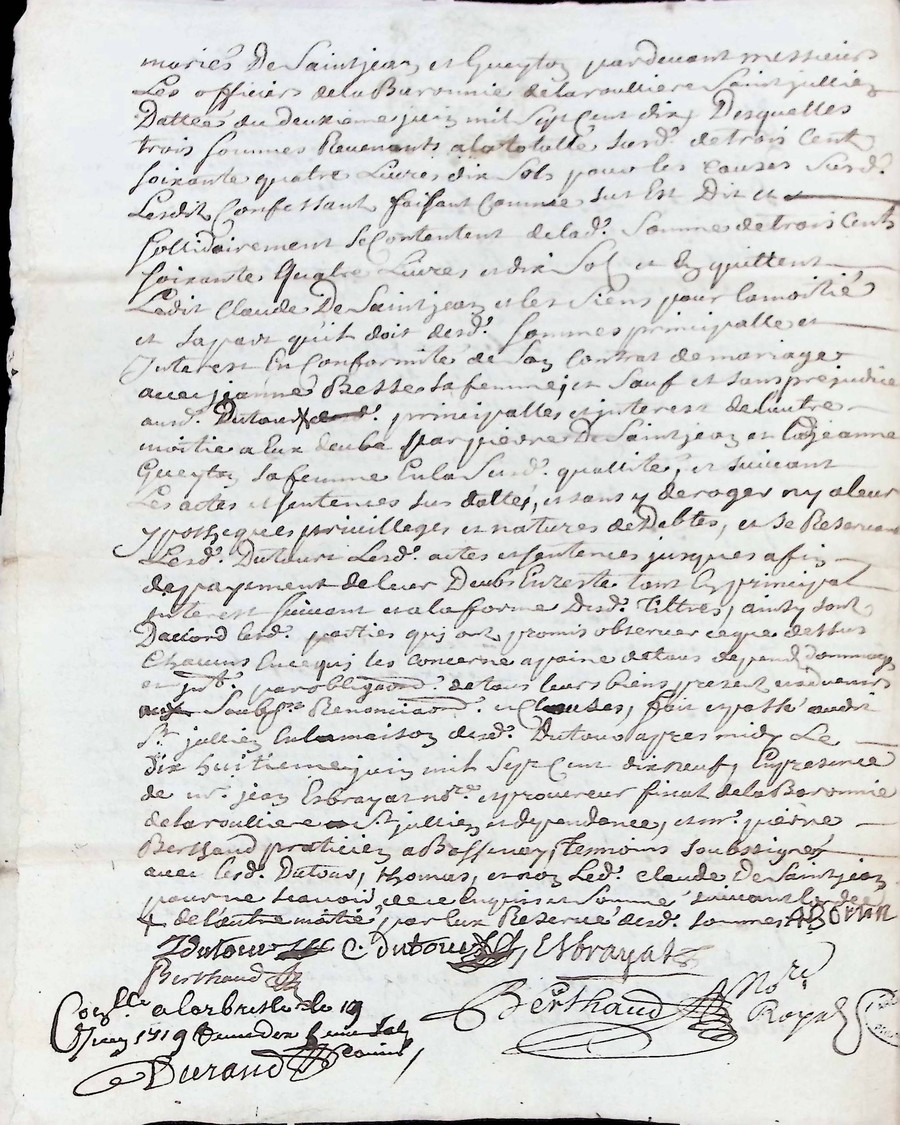 mariés De Saintjean et Gueyton pardevant messieurs
Les officiers dela Baronnie delaroulliere Saintjullien
Dattée du deuxieme juin mil Sept Cent dix, Desquelles
trois sommes Revenants alatotalle susd.e detrois Cent
soixante quatre Livres dix Sols pour les Causes Susd.
Lesdit Confessant faisant Comme sus Est Dit et
sollidairement se Contentent delad.e Somme detrois Cents
soixante Quatre Livres et dix Sols et En quittent
Ledit Claude De Saintjean et les Siens pour lamoitié
et sapart qu'il doit desd. sommes principalle et
Interest En Conformité de Son Contrat demariage
avec jeanne Besse safemme, et Sauf et sans prejudice
ausd. Dutour principalles et interest delautre
moitié a Eux deube par pierre De Saintjean et lad jeanne
Gueyton safemme En la Susd. quallité, et suivant
Les actes et sentences sus dattés, et sans y deroger ny aleur
ypotheques privilleges et natures de Debtes, et se Reservant
Lesd. Dutours Lesd. actes et sentences jusques afin
depayement de leur Deub En reste tant En principal
Interest suivant et alaforme Desd. Tiltres, ainsy sont
Daccord lesd. parties qui ont promis observer ceque dessus
Chacuns En cequi les concerne apaine detous depend dommages
et jnt. par obligaon. de tous leurs biens present et advenir
Soubsns Renonciaon. et Clauses, fait et passé audit
St. jullien En lamaison desd. Dutour apres midy Le
dix huitieme juin mil Sept Cent dix neuf, En presence
de mr. jean Esbrayat nore. et procureur fiscal de la Baronnie
delaroulliere St. jullien et dependance, et mr. pierre
Berthaud praticien a Bossiney, temoins soubsignés
avec lesd. Dutour, thomas, et non Led. Claude De Saintjean
pour ne scavoir, de ce Enquis et Sommé suivant lordce
+ de l'autre moitié par Eux Reservé desd. sommes
Dutour C. Dutour Esbrayat
Berthaud
Berthaud Nore Royal
Conlle a le 19
Juin 1719 Sols
Durand Commis